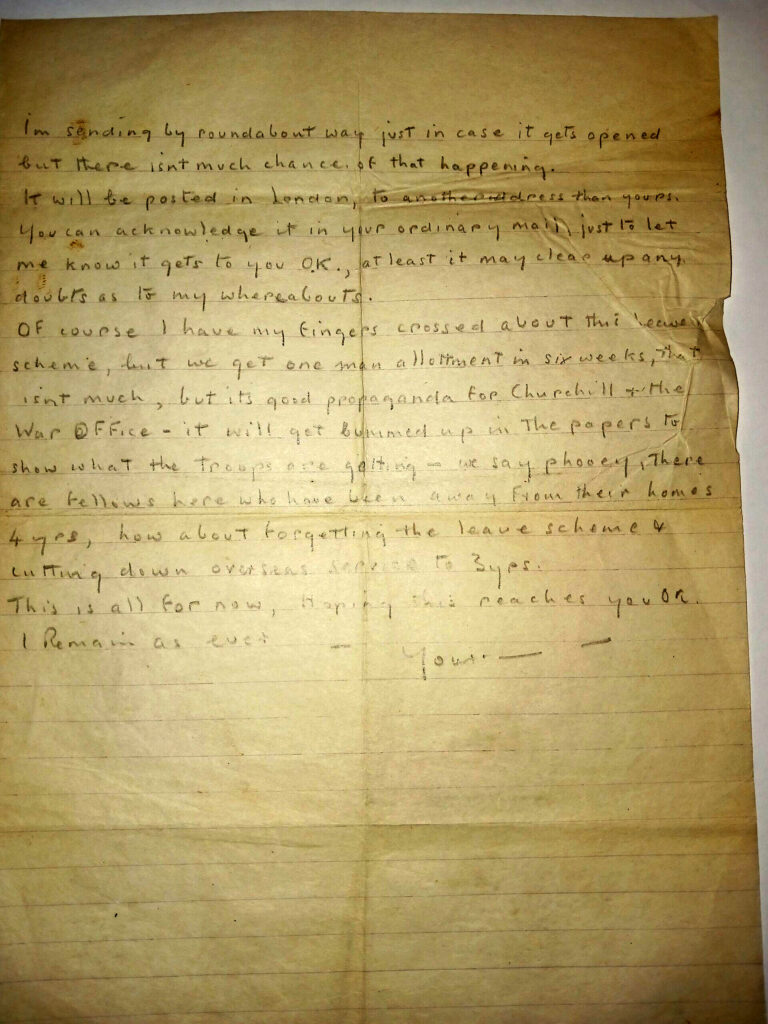 Im sending by roundabout way just in case it gets opened
but there isnt much chance of that happening.
It will be posted in London, to another address than yours.
You can acknowledge it in your ordinary mail, just to let
me know it gets to you OK., at least it may clear up any
doubts as to my whereabouts.
Of course I have my fingers crossed about this leave
scheme, but we get one man allottment in six weeks, that
isnt much, but its good propaganda for Churchill & the
War Office - it will get bummed up in the papers to
show what the troops are getting - we say phooey, there
are fellows here who have been away from their homes
4 yrs, how about forgetting the leave scheme &
cutting down overseas service to 3yrs.
This is all for now, Hoping this reaches you OK.
I Remain as ever - Your - -